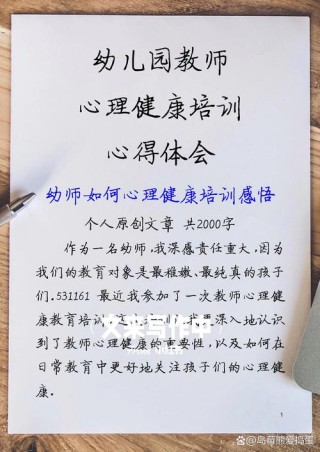 幼儿园教师
心理健康培训
心得体会
幼师如何心理健康培训感悟
个人原创文章 共2000字
作为一名幼师,我深感责任重大,因为
我们的教育对象是最稚嫩、最纯真的孩子
们.531161 最近我参加了一次教师心理健
康教育培训 更深入地认识
文来写作中
到了教师心理健康的重要性,以及如何在
日常教育中更好地关注孩子们的心理健
康.
1
@岛莓熊爱捣蛋